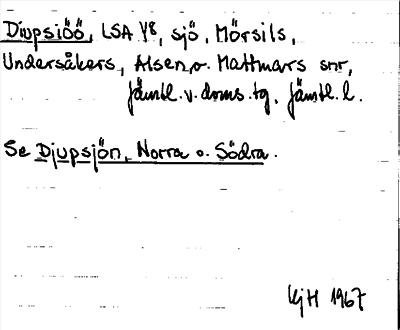 Diupsiöö, LSA Y8, sjö, Mörsils,
Undersåkers, Alsen, o. Mattmars snr,
Jämtl. v. doms. tg, Jämtl. l.
Se Djupsjön, Norra o. Södra.
HjH 1967